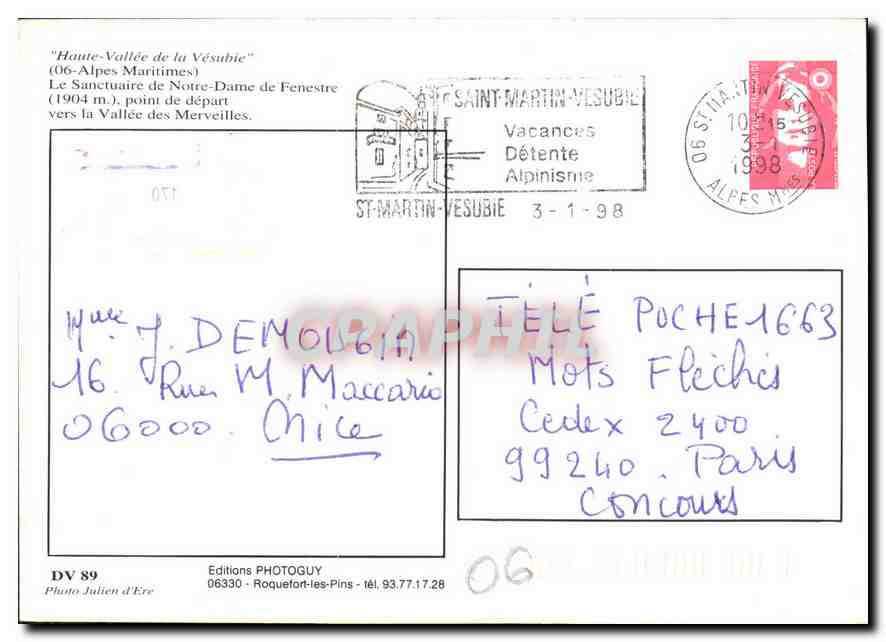 "Haute-Vallée de la Vésubie"
(06-Alpes Maritimes)
Le Sanctuaire de Notre-Dame de Fenestre
(1904 m.), point de départ
vers la Vallée des Merveilles.
SAINT-MARTIN-VESUBIE
Vacances
Détente
Alpinisme
ST-MARTIN-VESUBIE 3-1-98
06 ST MARTIN VESUBIE
3-1
1998
ALPES Mmes
170
Mme J. DEMOUGIN
16. Rue M. Maccario
06000. Nice
TÉLÉ POCHE 1663
Mots Fléchés
Cedex 2400
99240. Paris
Concours
CPAPHIL
DV 89
Photo Julien d'Ere
Editions PHOTOGUY
06330 - Roquefort-les-Pins - tél. 93.77.17.28
06